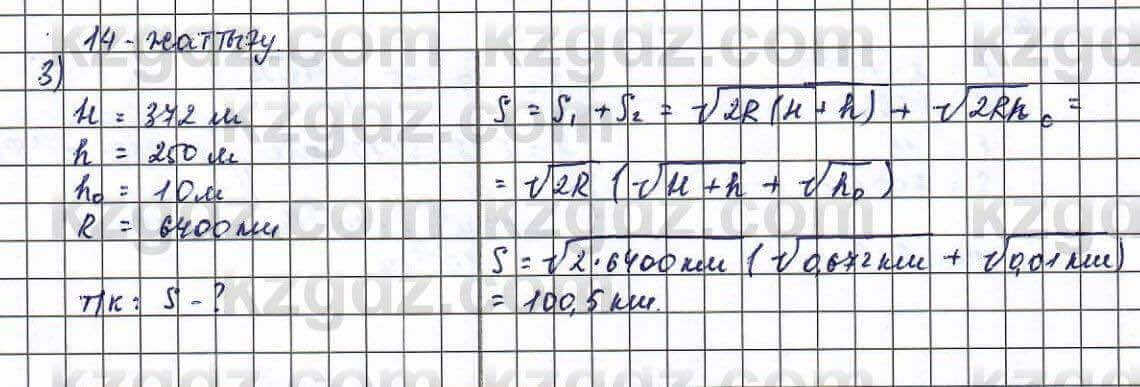 14-жаттығу
3)
H = 372 м
h = 250 м
h₀ = 10 м
R = 6400 км
т/к: S - ?
S = S₁ + S₂ = √2R(H + h) + √2Rh₀ =
= √2R (√H + h + √h₀)
S = √2·6400км (√0,672км + √0,01км)
= 100,5 км.
kzgdz.com